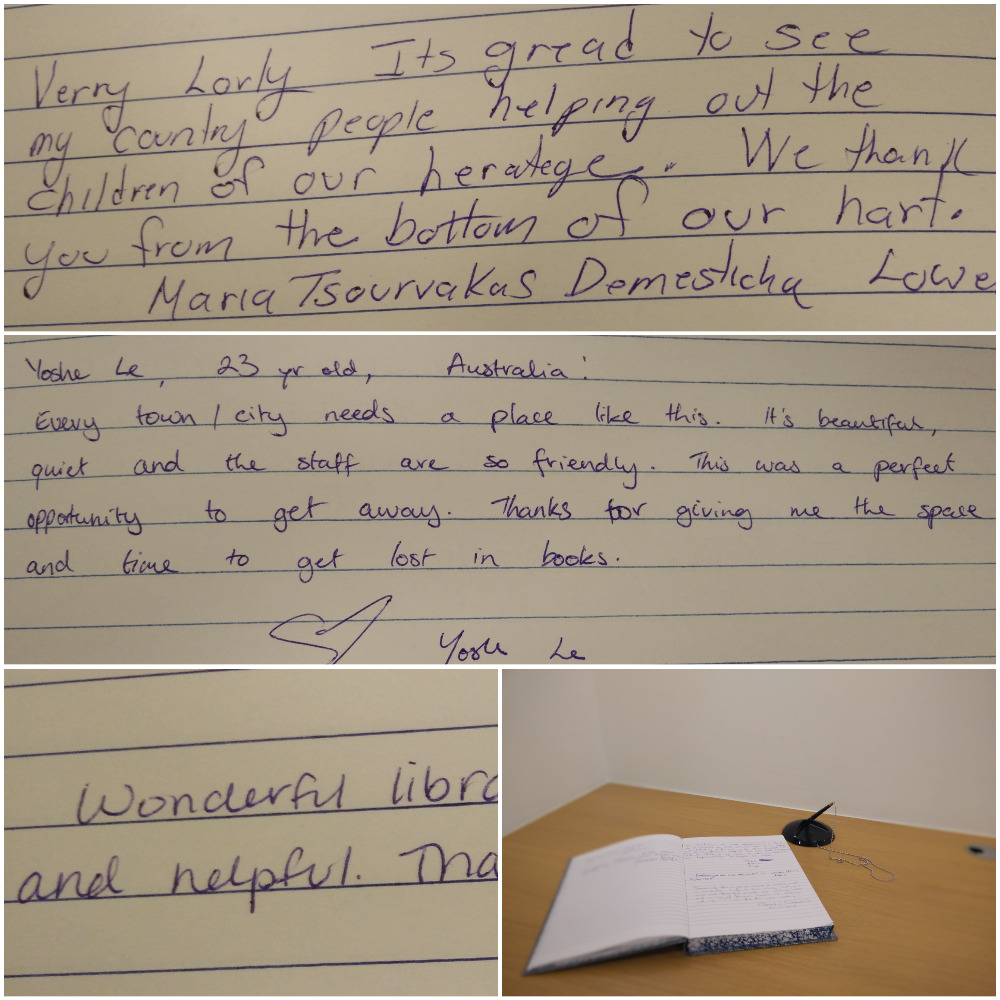 Verry Lorly Its gread to see
my country people helping out the
children of our heratege.. We thank
you from the bottom of our hart.
Maria Tsourvakas Demesticha Lowe
Yoshe Le, 23 yr old, Australia:
Every town / city needs a place like this. It's beautiful,
quiet and the staff are so friendly. This was a perfect
opportunity to get away. Thanks for giving me the space
and time to get lost in books.
Yoshe Le
Wonderful libra
and helpful. Tha